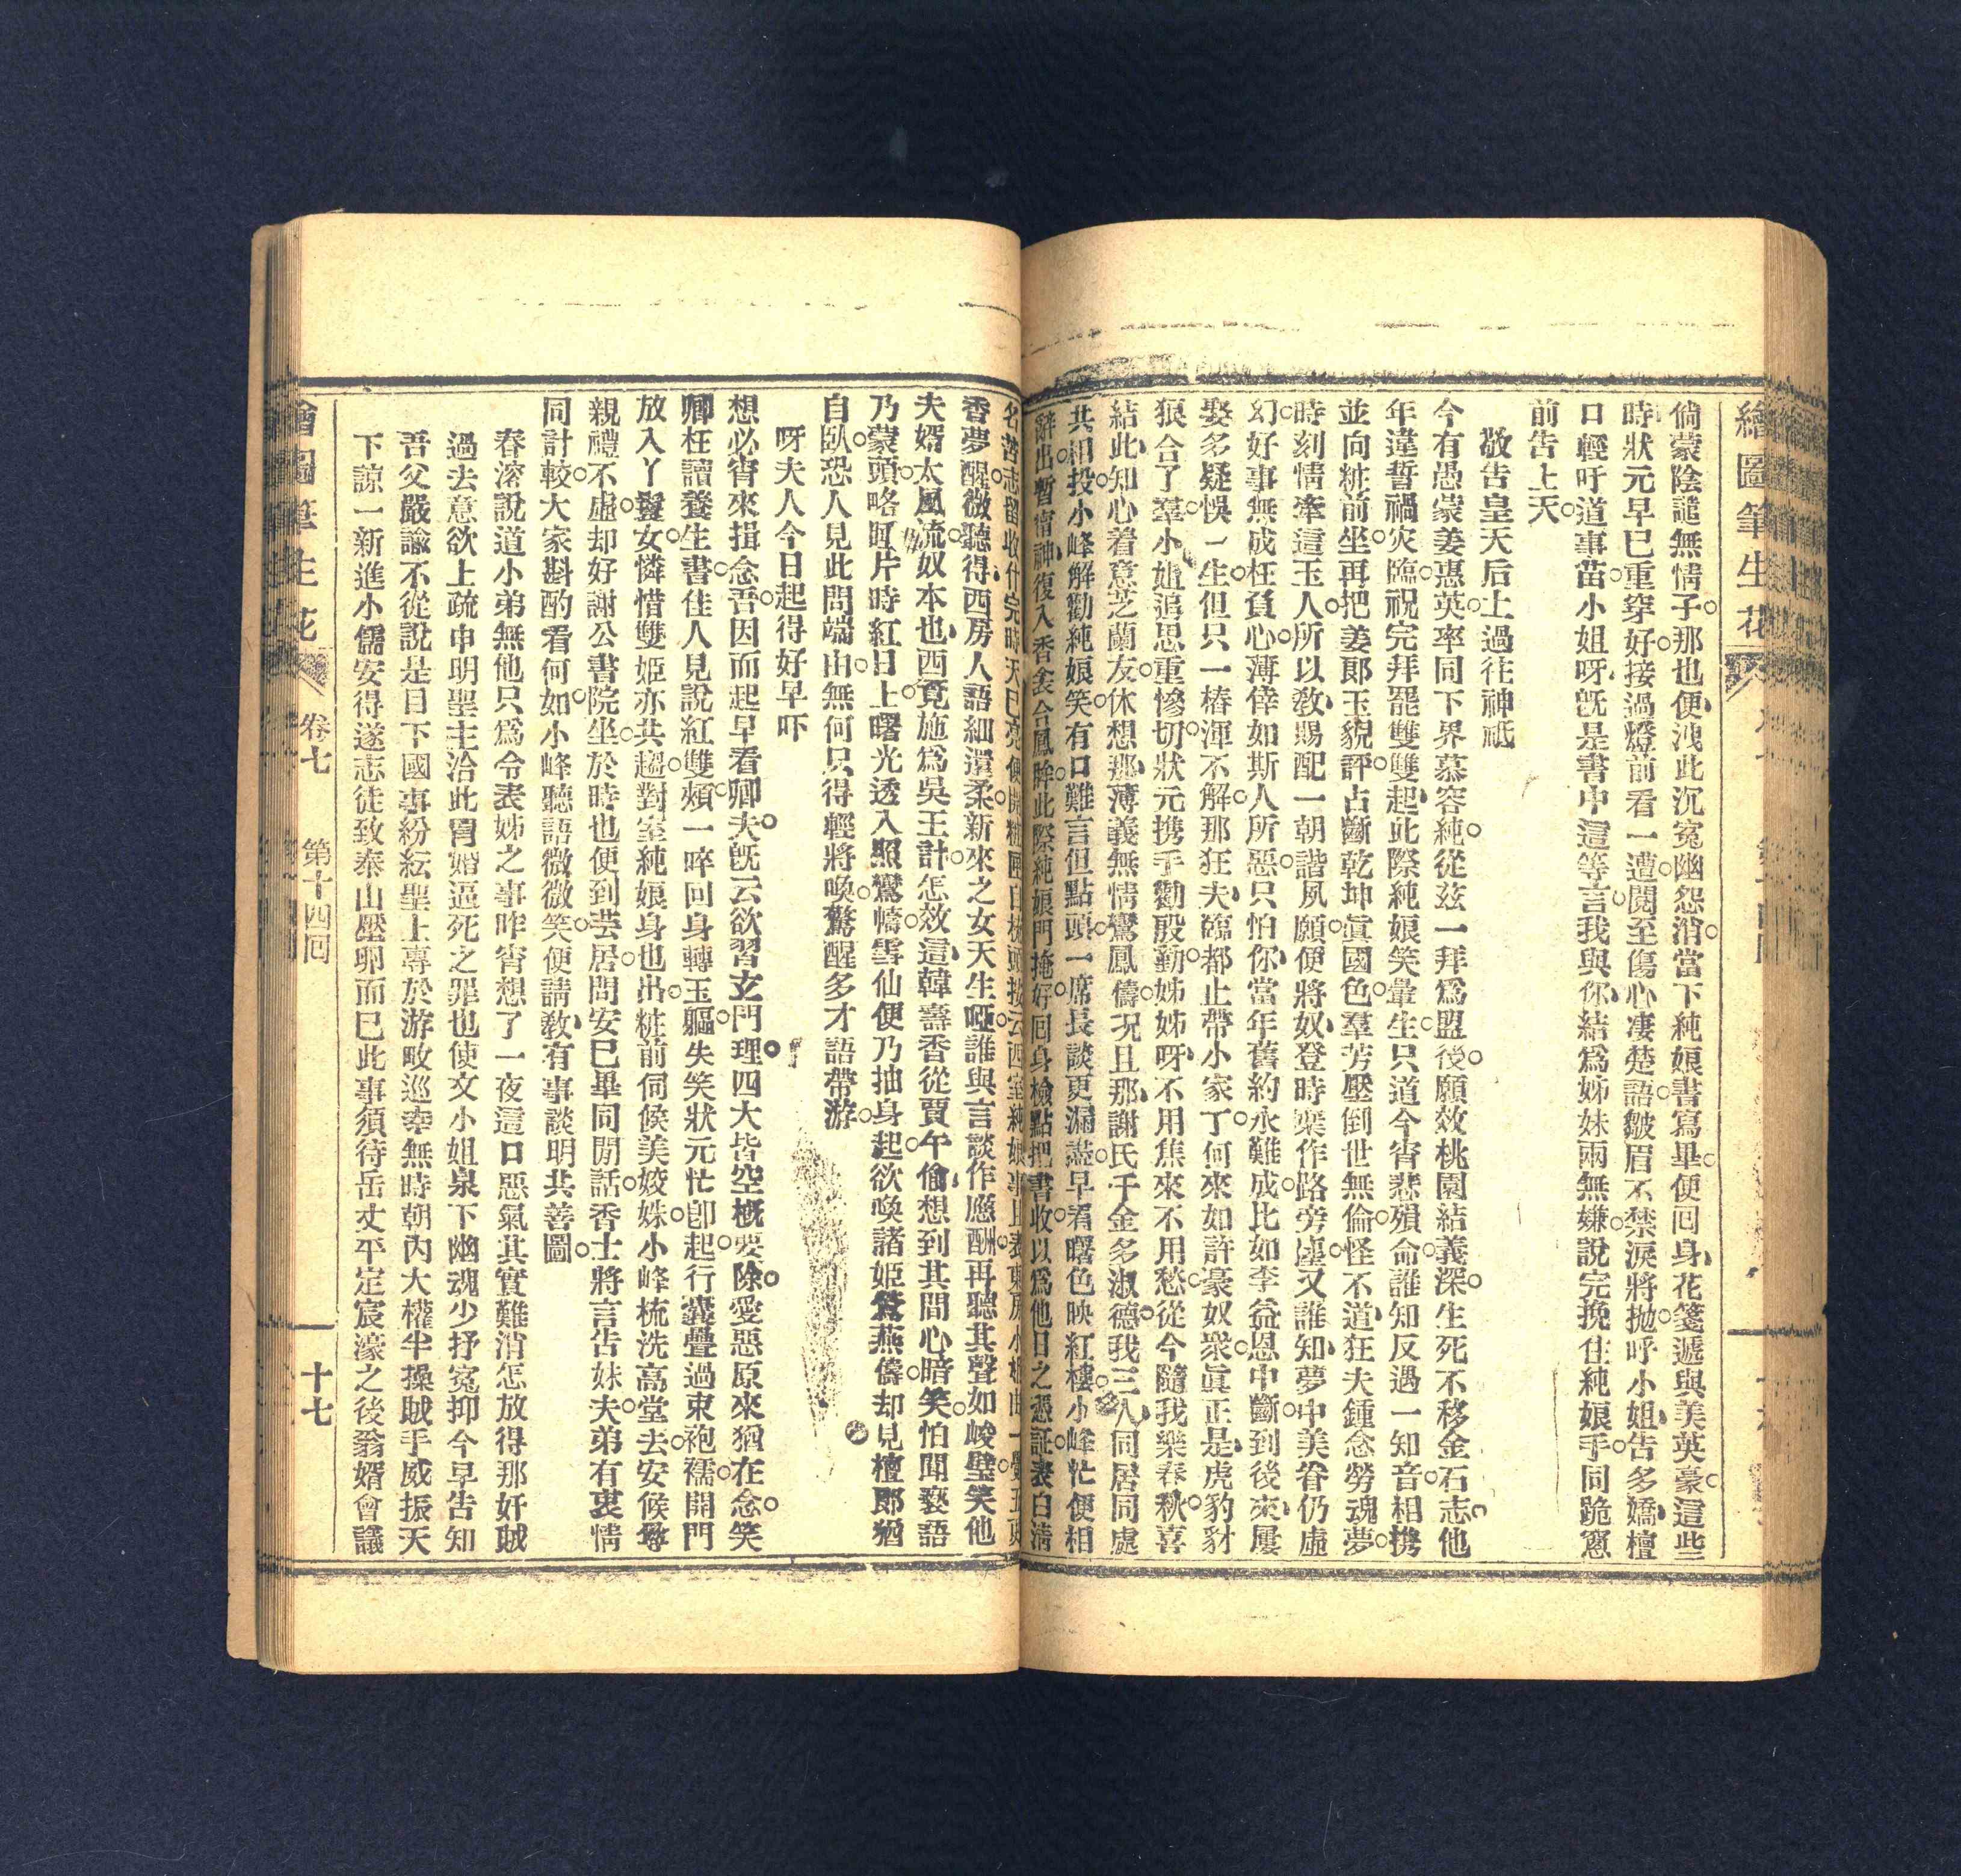 繪圖筆生花
倘蒙陰譴無情子。那也便洩此沉冤幽怨消。當下純娘書寫畢。便回身、花箋遞與美英豪。這些
時狀元早已重穿好。接過燈前看一遭。閱至傷心凄楚語。皺眉不禁淚將拋。呼小姐、告多嬌、檀
口輕吁道事苗。小姐呀、旣是書中這等言。我與你、結爲姊妹兩無嫌。說完挽住純娘手。同跪窻
前告上天。
敬告皇天后土過往神祗
今有愚蒙姜惠英。率同下界慕容純。從玆一拜爲盟後。願效桃園結義深。生死不移金石志。他
年違誓禍災臨。祝完拜罷雙雙起。此際純娘笑暈生。只道今宵悲殞命。誰知反遇一知音。相携
並向粧前坐。再把姜郎玉貌評。占斷乾坤眞國色。羣芳壓倒世無倫。怪不道、狂夫鍾念勞魂夢。
時刻情牽這玉人。所以教、賜配一朝諧夙願。便將奴、登時棄作路旁塵。又誰知、夢中美眷仍虛
幻。好事無成枉負心。薄倖如斯人所惡。只怕你、當年舊約永難成。比如李益恩中斷。到後來、屢
娶多疑悞一生。但只一樁渾不解。那狂夫、臨都止帶小家丁。何來如許豪奴衆。眞正是、虎豹豺
狼合了羣。小姐追思重慘切。狀元携手勸殷勤。姊姊呀、不用焦來不用愁。從今隨我樂春秋。喜
結此、知心着意芝蘭友。休想那、薄義無情鸞鳳儔。况且那、謝氏千金多淑德。我三人、同居同處
共相投。小峰解勸純娘笑。有口難言但點頭。一席長談更漏盡。早看曙色映紅樓。小峰忙便相
辭出。暫會神、復入香衾合鳳眸。此際純娘門掩好。回身檢點把書收。以爲他日之憑証。表白淸
香夢醒。微聽得、西房人語細還柔。新來之女天生啞。誰與言談作應酬。再聽其聲如峻璧。笑他
夫婿太風流。奴本也、西寛施爲吳王計。怎效這、韓壽香從賈午偷。想到其間心暗笑。怕聞褻語
乃蒙頭。略眶片時紅日上。曙光透入照鸞幬。雪仙便乃抽身起。欲喚諸姬鶯燕儔。却見檀郞猶
自臥。恐人見此問端由。無何只得輕將喚。驚醒多才語帶游。
呀夫人今日起得好早吓
想必宵來揖念吾。因而起早看卿夫。旣云欲習玄門理。四大皆空概要除。愛惡原來猶在念。笑
卿枉讀養生書。佳人見說紅雙頰。一啐回身轉玉軀。失笑狀元忙卽起。行囊疊過束袍襦。開門
放入丫鬟女。憐惜雙姬亦共趨。對室純娘身也出。粧前伺候美姣姝。小峰梳洗高堂去。安候尊
親禮不虛。却好謝公書院坐。於時也便到芸居。問安已畢同閒話。香士將言告妹夫。弟有衷情
同計較。大家斟酌看何如。小峰聽語微微笑。便請教、有事談明共善圖。
春溶說道小弟無他只爲令表姊之事昨宵想了一夜這口惡氣其實難消怎放得那奸賊
過去意欲上疏申明聖主治此胃婚逼死之罪也使文小姐泉下幽魂少抒寃抑今早告知
吾父嚴諭不從說是目下國事紛紜聖上專於游畋巡幸無時朝內大權半操賊手威振天
下諒一新進小儒安得遂志徒致泰山壓卵而已此事須待岳丈平定宸濠之後翁婿會議
繪圖筆生花
卷七
第十四回
十七